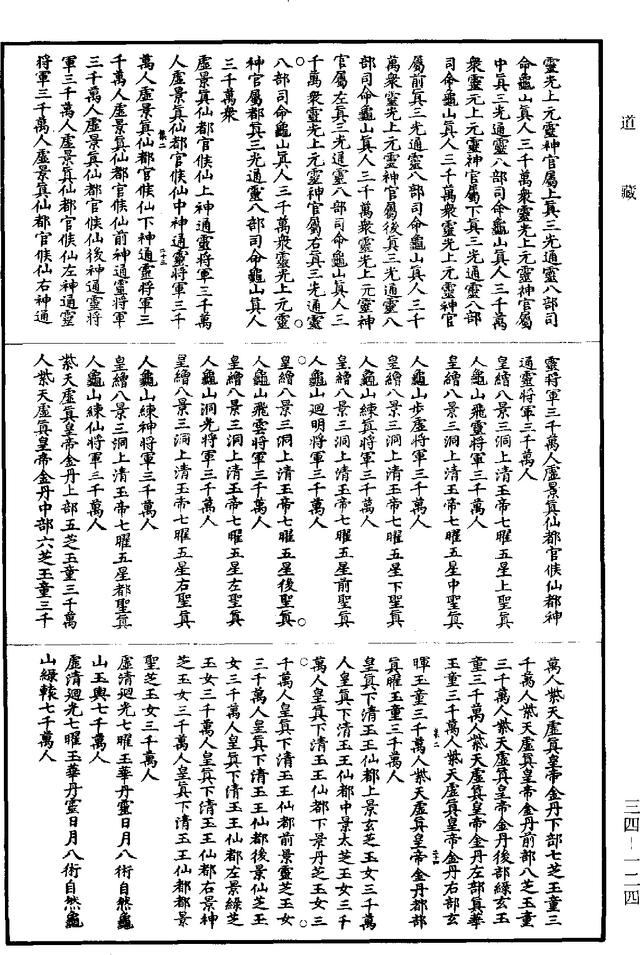 道藏
靈光上元靈神官屬上眞三光通靈八部司
命龜山眞人三千萬衆靈光上元靈神官屬
中眞三光通靈八部司命龜山眞人三千萬
衆靈元上元靈神官屬下眞三光通靈八部
司命龜山眞人三千萬衆靈光上元靈神官
屬前眞三光通靈八部司命龜山眞人三千
萬衆靈光上元靈神官屬後眞三光通靈八
部司命龜山眞人三千萬衆靈光上元靈神
官屬左眞三光通靈八部司命龜山眞人三
千萬衆靈光上元靈神官屬右眞三光通靈
八部司命龜山眞人三千萬衆靈光上元靈
神官屬都眞三光通靈八部司命龜山眞人
三千萬衆
虛景眞仙都官候仙上神通靈將軍三千萬
人虛景眞仙都官候仙中神通靈將軍三千
二十三
萬人虛景眞仙都官候仙下神通靈將軍三
千萬人虛景眞仙都官候仙前神通靈將軍
三千萬人虛景眞仙都官候仙後神通靈將
軍三千萬人虛景眞仙都官候仙左神通靈
將軍三千萬人虛景眞仙都官候仙右神通
靈將軍三千萬人虛景眞仙都官候仙都神
通靈將軍三千萬人
皇繒八景三洞上清玉帝七曜五星上聖眞
人龜山飛靈將軍三千萬人
皇繒八景三洞上清玉帝七曜五星中聖眞
人龜山步虛將軍三千萬人
皇繒八景三洞上清玉帝七曜五星下聖眞
人龜山練眞將軍三千萬人
皇繒八景三洞上清玉帝七曜五星前聖眞
人龜山迴明將軍三千萬人
皇繒八景三洞上清玉帝七曜五星後聖眞
人龜山飛雲將軍三千萬人
皇繒八景三洞上清玉帝七曜五星左聖眞
人龜山洞光將軍三千萬人
皇繒八景三洞上清玉帝七曜五星右聖眞
人龜山練神將軍三千萬人
皇繒八景三洞上清玉帝七曜五星都聖眞
人龜山練仙將軍三千萬人
紫天虛眞皇帝金丹上部五芝玉童三千萬
人紫天虛眞皇帝金丹中部六芝玉童三千
萬人紫天虛眞皇帝金丹下部七芝玉童三
千萬人紫天虛眞皇帝金丹前部八芝玉童
三千萬人紫天虛眞皇帝金丹後部綠玄玉
童三千萬人紫天虛眞皇帝金丹左部眞華
玉童三千萬人紫天虛眞皇帝金丹右部玄
暉玉童三千萬人紫天虛眞皇帝金丹都部
眞曜玉童三千萬人
皇眞下清玉王仙都上景玄芝玉女三千萬
人皇眞下清玉王仙都中景太芝玉女三千
萬人皇眞下清玉王仙都下景丹芝玉女三
千萬人皇眞下清玉王仙都前景靈芝玉女
三千萬人皇眞下清玉王仙都後景仙芝玉
女三千萬人皇眞下清玉王仙都左景綠芝
玉女三千萬人皇眞下清玉王仙都右景神
芝玉女三千萬人皇眞下清玉王仙都都景
聖芝玉女三千萬人
虛清迴光七曜玉華丹靈日月八術自然龜
山玉輿七千萬人
虛清迴光七曜玉華丹靈日月八術自然龜
山綠軿七千萬人
三四-一二四